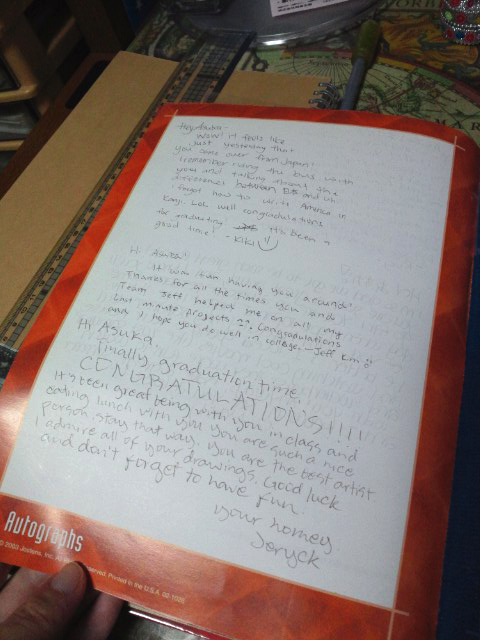 Hey Asuka-
Wow! it feels like
just yesterday that
you came over from Japan!
I remember riding the bus with
you and talking about the
differences between
forgot how to write America in
Kanji. Lol. well congradulations
for graduating! It's been a
good time! - Kiki
Hi Asuka!
It was fun having you around.
Thanks for all the times you and
Team Jeff helped me on all my
last minute projects ^^ Congradulations
and I hope you do well in college. - Jeff Kim
Hi Asuka,
Finally, graduation time.
CONGRATULATIONS!!!!!
It's been great being with you in class and
eating lunch with you. You are such a nice
person. stay that way. You are the best artist
I admire all of your drawings. Good luck
and don't forget to have fun.
your homey
Joryck
Autographs
© 2003 Jostens, Inc. reserved. Printed in the U.S.A.